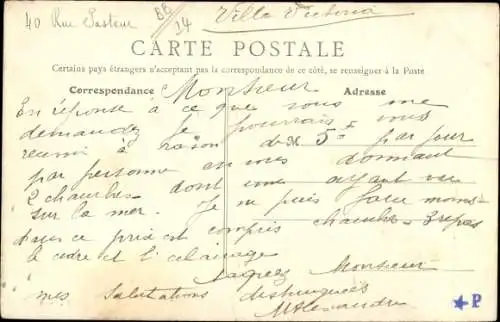 40 Rue Pasteur
86/14
Villa Victoria
CARTE POSTALE
Certains pays étrangers n'acceptant pas la correspondance de ce côté, se renseigner à la Poste
Correspondance
Adresse
Monsieur
En réponse à ce que vous me
demandez je pourrais vous
à raison de 5 F par jour
par personne en vous donnant
2 chambres dont une ayant vue
sur la mer. Je ne puis faire moins
Dans ce prix est compris chambre 3 repas
le cidre et l'éclairage
Agréez Monsieur
mes Salutations distinguées
M Alexandre
P